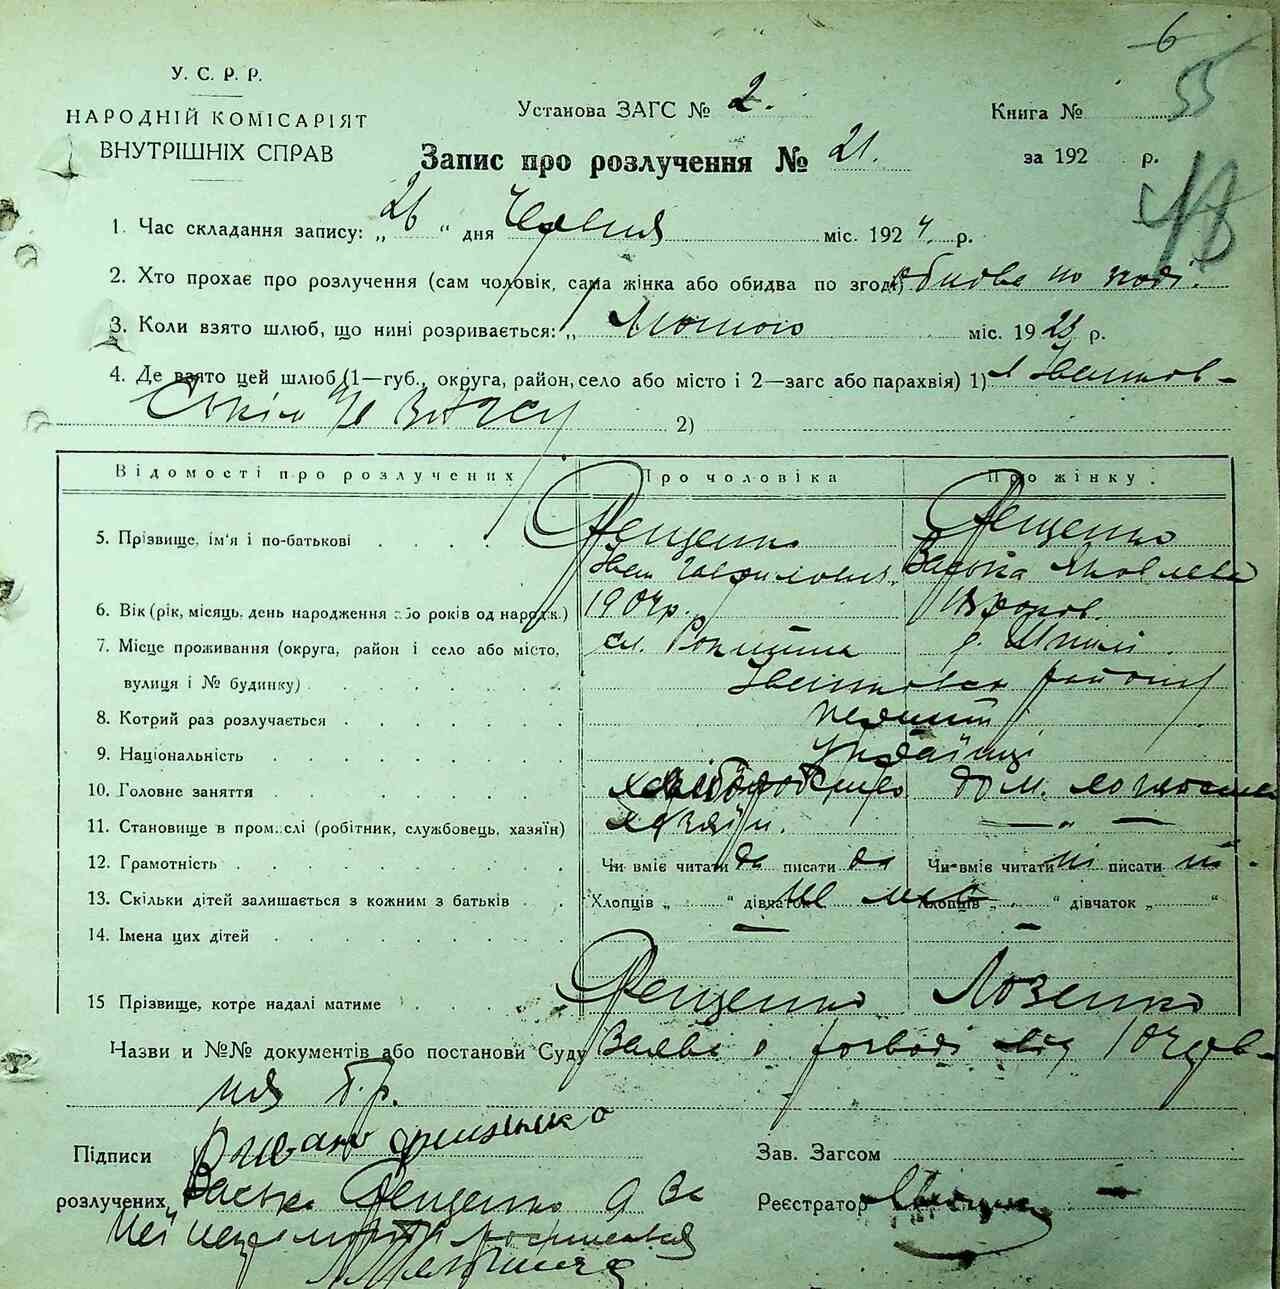 6
55
У. С. Р. Р.
НАРОДНІЙ КОМІСАРІЯТ
ВНУТРІШНІХ СПРАВ
Установа ЗАГС № 2.
Книга №
Запис про розлучення № 21.
за 192 р.
1. Час складання запису: „ 26 “ дня Червня міс. 1924. р.
2. Хто прохає про розлучення (сам чоловік, сама жінка або обидва по згоді) обидва по згоді.
3. Коли взято шлюб, що нині розривається: „ Лютого міс. 1923 р.
4. Де взято цей шлюб (1—губ., округа, район, село або місто і 2—загс або парахвія) 1)
2)
Відомості про розлучених Про чоловіка Про жінку.
5. Прізвище, ім'я і по-батькові Фещенко Фещенко
Іван Гаврилович Васька Яковлева
6. Вік (рік, місяць, день народження або років од народж.) 1904 р. 18 років.
7. Місце проживання (округа, район і село або місто, сл.
вулиця і № будинку) району
8. Котрий раз розлучається перший
9. Національність Українці
10. Головне заняття хліборобство дом.
11. Становище в промислі (робітник, службовець, хазяїн) хазяїн. — „ —
12. Грамотність Чи вміє читати да писати да Чи вміє читати ні писати ні.
13. Скільки дітей залишається з кожним з батьків Хлопців „ “ дівчаток не має Хлопців „ “ дівчаток „ “
14. Імена цих дітей — —
15 Прізвище, котре надалі матиме Фещенко Лозенко
Назви и №№ документів або постанови Суду Заява о розводі від 10 черв-
ня т.р.
Підписи
Зав. Загсом
розлучених Васька Фещенко а за
Реєстратор
неї неграмотну